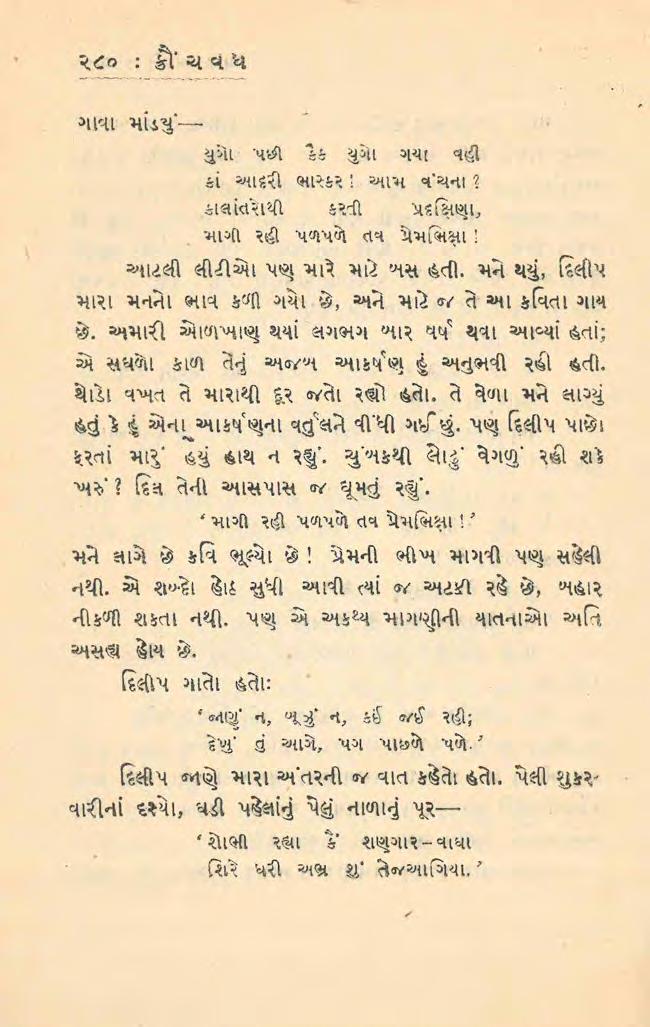 ૨૮૦ : ક્રૌંચવધ
ગાવા માંડ્યું—
યુગો પછી કૈક યુગો ગયા વહી
કાં આદરી ભાસ્કર! આમ વંચના?
કાલાંતરોથી કરતી પ્રદક્ષિણા,
માગી રહી પળપળે તવ પ્રેમભિક્ષા!
આટલી લીટીઓ પણ મારે માટે બસ હતી. મને થયું, દિલીપ
મારા મનનો ભાવ કળી ગયો છે, અને માટે જ તે આ કવિતા ગાય
છે. અમારી ઓળખાણ થયાં લગભગ બાર વર્ષ થવા આવ્યાં હતાં;
એ સઘળો કાળ તેનું અજબ આકર્ષણ હું અનુભવી રહી હતી.
થોડો વખત તે મારાથી દૂર જતો રહ્યો હતો. તે વેળા મને લાગ્યું
હતું કે હું એના આકર્ષણના વર્તુલને વીંધી ગઈ છું. પણ દિલીપ પાછો
ફરતાં મારું હૈયું હાથ ન રહ્યું. ચુંબકથી લોઢું વેગળું રહી શકે
ખરું? દિલ તેની આસપાસ જ ઘૂમતું રહ્યું.
‘માગી રહી પળપળે તવ પ્રેમભિક્ષા!’
મને લાગે છે કવિ ભૂલ્યો છે! પ્રેમની ભીખ માગવી પણ સહેલી
નથી. એ શબ્દો હોઠ સુધી આવી ત્યાં જ અટકી રહે છે, બહાર
નીકળી શકતા નથી. પણ એ અકથ્ય માગણીની યાતનાઓ અતિ
અસહ્ય હોય છે.
દિલીપ ગાતો હતોઃ
‘જાણું ન, બૂઝું ન, કઈં જઈ રહી;
દેખું તું આગે, પગ પાછળે પળે.’
દિલીપ જાણે મારા અંતરની જ વાત કહેતો હતો. પેલી શુકર-
વારીનાં દશ્યો, ઘડી પહેલાંનું પેલું નાળાનું પૂર—
‘શોભી રહ્યા કૈં શણગાર-વાઘા
શિરે ધરી અભ્ર શું તેજઆગિયા.’